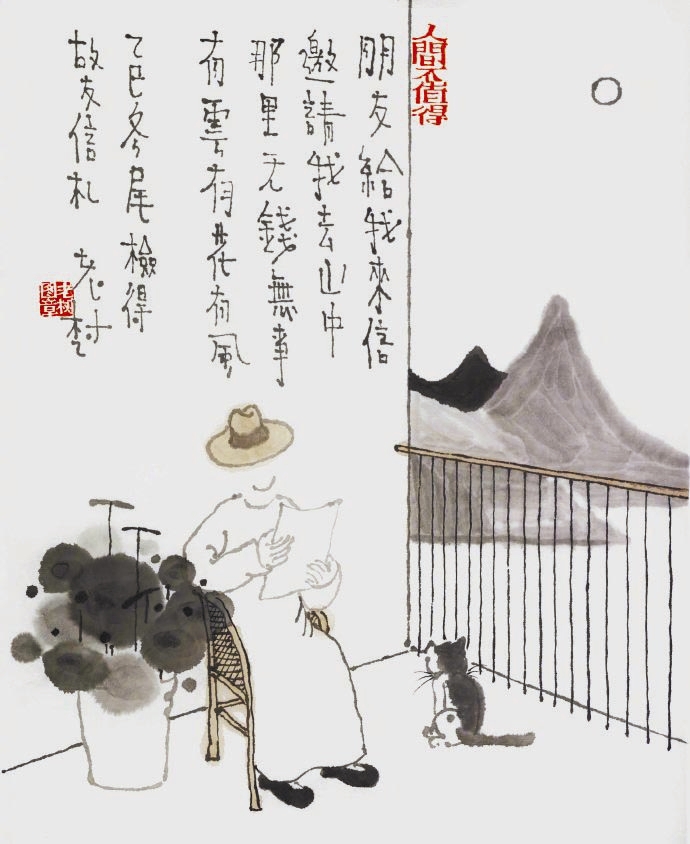 人間不值得
朋友給我來信
邀請我去山中
那里无錢無事
有雲有花有風
乙巳冬尾檢得
故友信札 老樹
老树图章